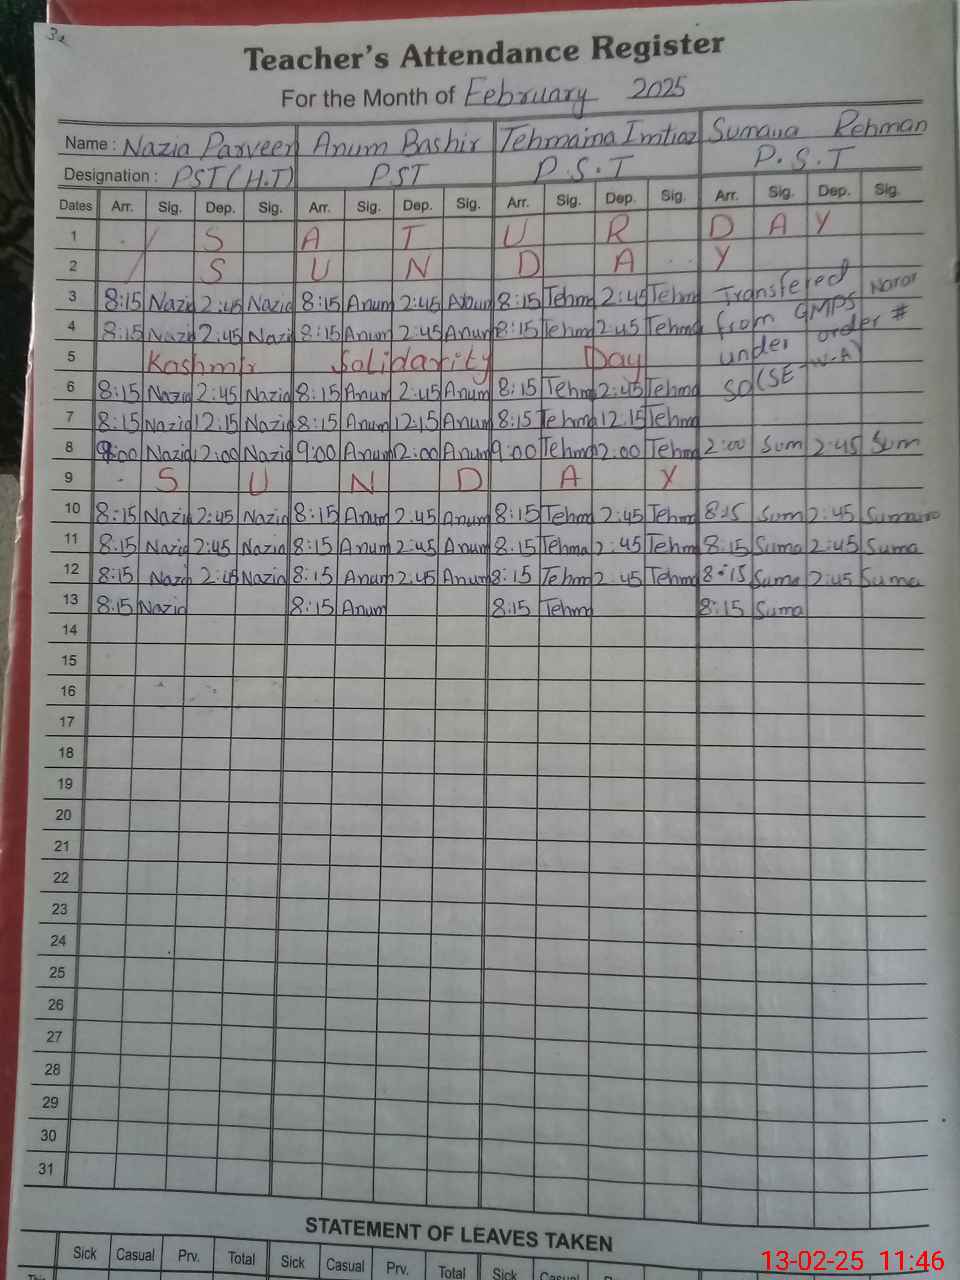 3x
Teacher's Attendance Register
For the Month of February 2025
Name : Nazia Parveen Anum Bashir Tehmaina Imtiaz Sumaua Rehman
Designation : PST (H.T) PST P.S.T P.S.T
Dates Arr. Sig. Dep. Sig. Arr. Sig. Dep. Sig. Arr. Sig. Dep. Sig. Arr. Sig. Dep. Sig.
1 S A T U R D A Y
2 S U N D A Y
3 8:15 Nazia 2:45 Nazia 8:15 Anum 2:45 Anum 8:15 Tehm 2:45 Tehm Transfered
4 8:15 Nazia 2:45 Nazi 8:15 Anum 2:45 Anum 8:15 Tehm 2:45 Tehm from GMPS order #
5 Kashmir Solidarity Day under
6 8:15 Nazia 2:45 Nazia 8:15 Anum 2:45 Anum 8:15 Tehm 2:45 Tehm SO(SE
7 8:15 Nazia 12:15 Nazia 8:15 Anum 12:15 Anum 8:15 Tehm 12:15 Tehm
8 9:00 Nazia 2:00 Nazia 9:00 Anum 2:00 Anum 9:00 Tehm 2:00 Tehm 2:00 Sum 2:45 Sum
9 S U N D A Y
10 8:15 Nazia 2:45 Nazia 8:15 Anum 2:45 Anum 8:15 Tehm 2:45 Tehm 8:15 Sum 2:45
11 8:15 Nazia 2:45 Nazia 8:15 Anum 2:45 Anum 8:15 Tehma 2:45 Tehm 8:15 Suma 2:45 Suma
12 8:15 Naza 2:45 Nazia 8:15 Anum 2:45 Anum 8:15 Tehm 2:45 Tehm 8:15 Suma 2:45 Suma
13 8:15 Nazia 8:15 Anum 8:15 Tehm 8:15 Suma
14
15
16
17
18
19
20
21
22
23
24
25
26
27
28
29
30
31
STATEMENT OF LEAVES TAKEN
Sick Casual Prv. Total Sick Casual Prv. Total Sick Casual
13-02-25 11:46